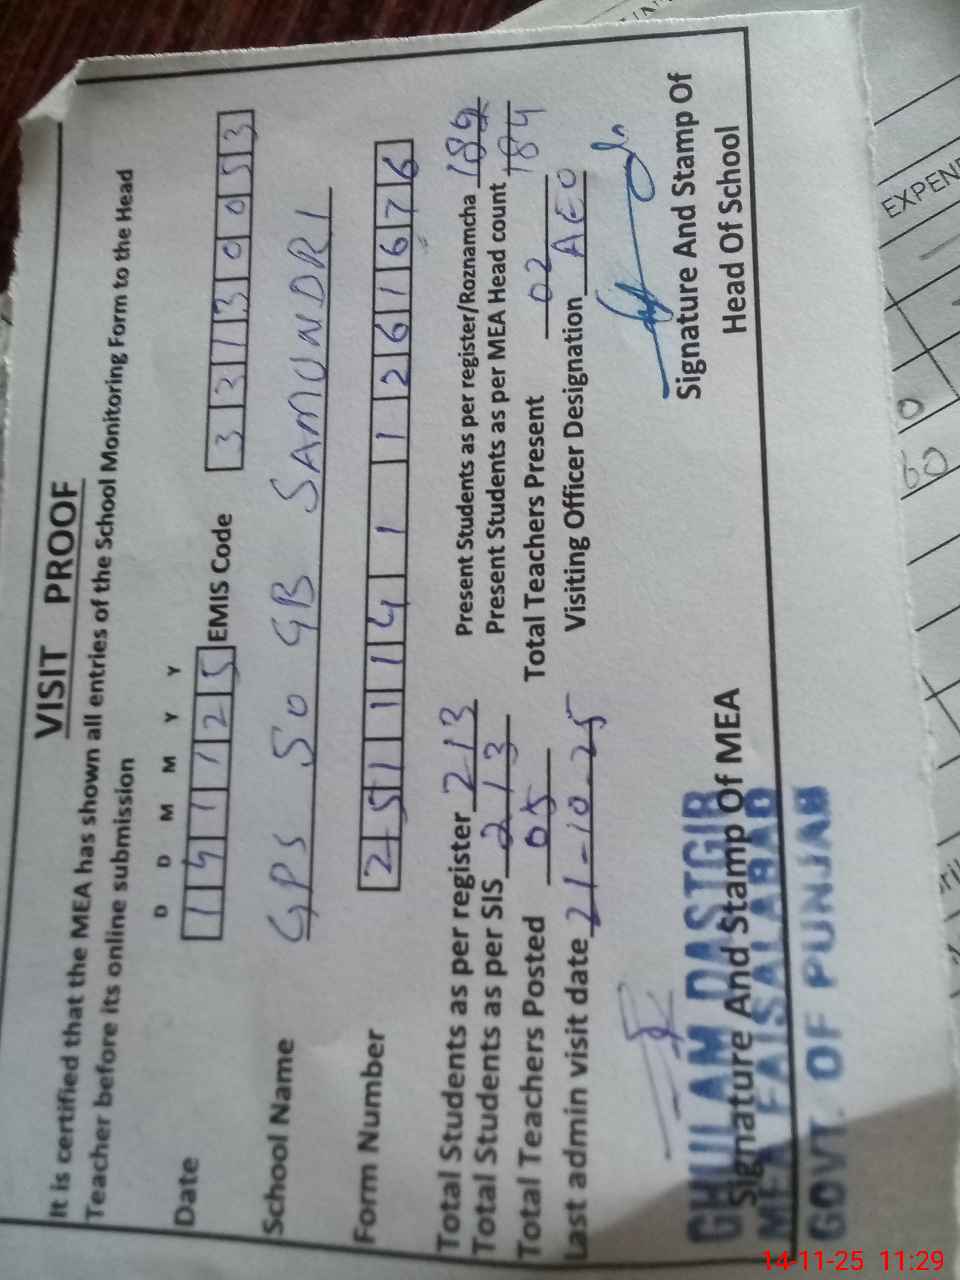 VISIT PROOF
It is certified that the MEA has shown all entries of the School Monitoring Form to the Head
Teacher before its online submission
D D M M Y Y
Date 1 4 1 1 2 5 EMIS Code 3 3 1 3 0 0 5 3
School Name GPS 50 GB SAMUNDRI
Form Number 2 5 1 1 4 1 1 2 6 1 6 7 6
Total Students as per register 213 Present Students as per register/Roznamcha 189
Total Students as per SIS 213 Present Students as per MEA Head count 184
Total Teachers Posted 05 Total Teachers Present 02
Last admin visit date 21-10-25 Visiting Officer Designation AEO
GHULAM DASTGIR
Signature And Stamp Of MEA Signature And Stamp Of
Head Of School
MEA FAISALABAD
GOVT. OF PUNJAB
EXPEN
60 0
14-11-25 11:29